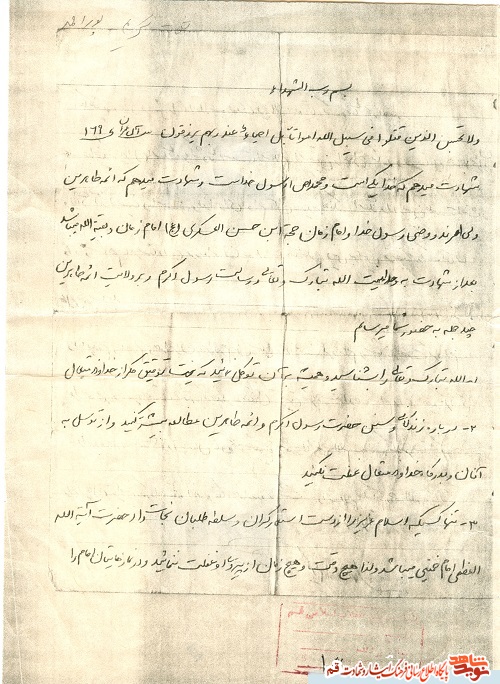 بسم رب الشهداء
ولا تحسبن الذین قتلوا فی سبیل الله امواتا بل احیاء عند ربهم یرزقون آل عمران ۱۶۹
شهادت میدهم که خدا یکی است و محمد (ص) رسول خداست و شهادت میدهم که ائمه طاهرین
ولی امرند و وصی رسول خدا و امام زمان حجة ابن حسن العسکری (عج) امام زمان و بقیة الله میباشد
بعد از شهادت به وحدانیت الله تبارک و تعالی و رسالت رسول اکرم و بر ولایت ائمه طاهرین
چند جمله به حضور شما میرسانم
۱- الله تبارک و تعالی را بشناسید و همیشه به آن توکل نمائید که نیست توفیق مگر از خداوند متعال
۲- درباره زندگانی و سنن حضرت رسول اکرم و ائمه طاهرین مطالعه بیشتر کنید و از توسل به
آنان و بدرگاه خداوند متعال غفلت نکنید
۳- تنها کسیکه اسلام عزیز را از دست استعمارگران و سلطه طلبان نجات داد حضرت آیة الله
العظمی امام خمینی میباشد و لذا هیچ وقت و هیچ زمان از پیروی او غفلت ننمائید و در نمازهایتان امام را
نوید شاهد
پایگاه اطلاع رسانی فرهنگ ایثار و شهادت قم